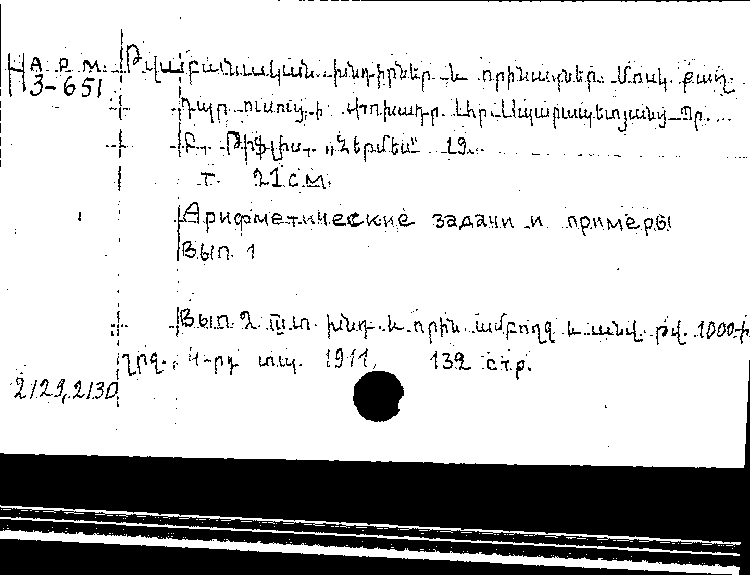 АРМ. Թվաբանական խնդիրներ և օրինակներ. Մոսկ. քաղ.
3-651
դպր. ուսուց.
Թիֆլիս, „Հերմես“ 19...
т. 21 см.
Арифметические задачи и примеры
Вып. 1
Вып. 2 խնդ. և օրին. ամբողջ և անվ. թվ. 1000-ի
շրջ., 4-րդ տպ. 1911, 132 стр.
2129, 2130